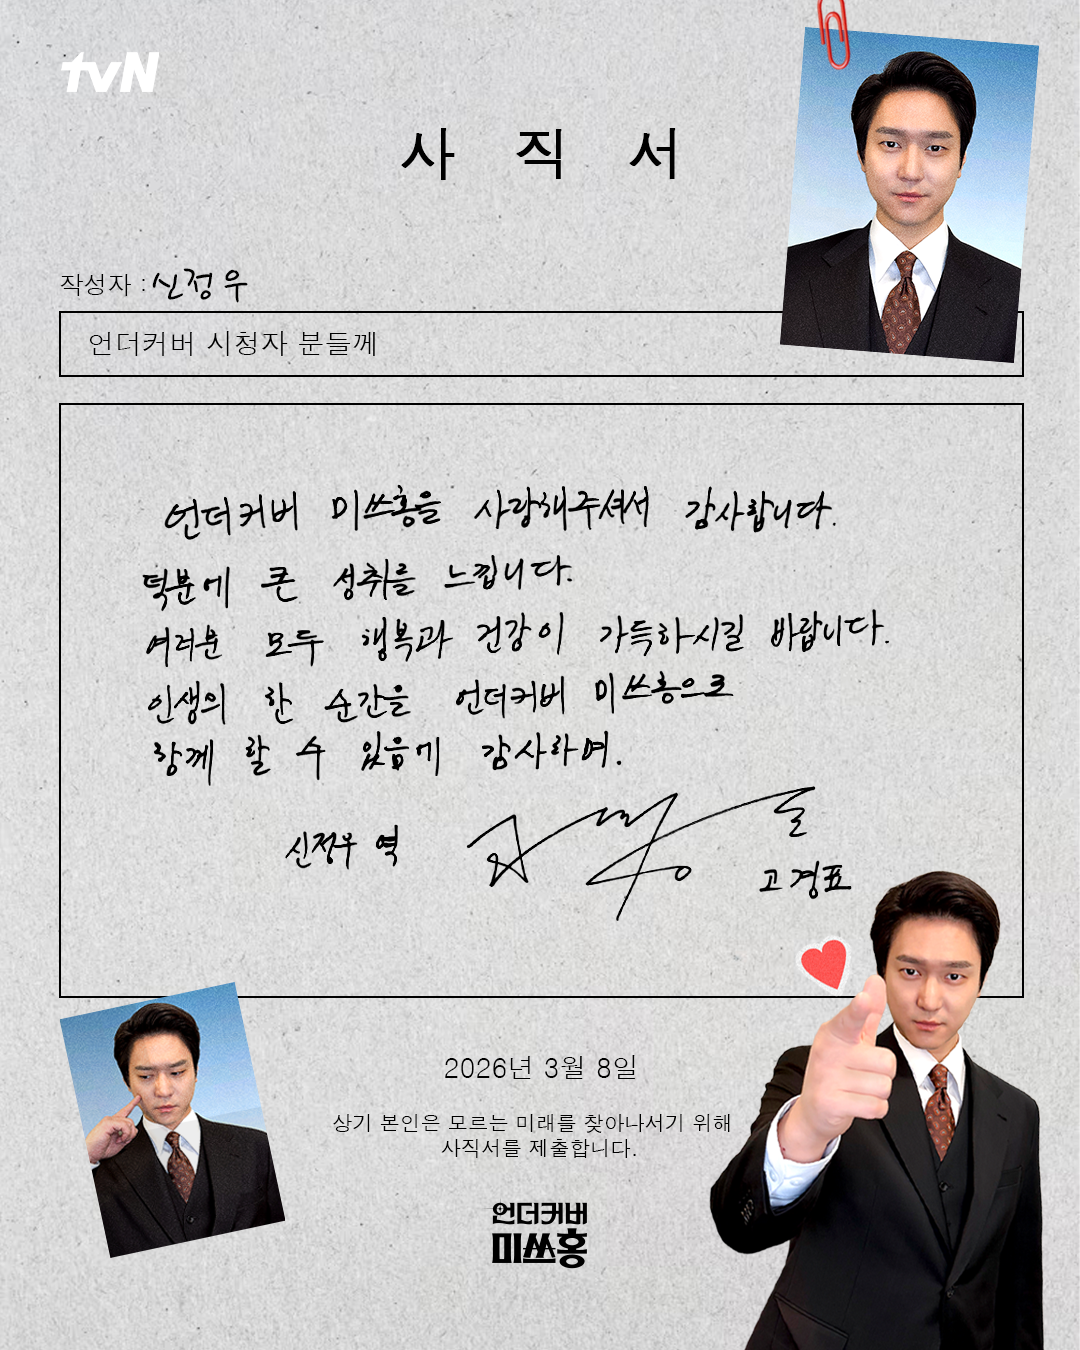 tvN
사 직 서
작성자 : 신정우
언더커버 시청자 분들께
언더커버 미쓰홍을 사랑해주셔서 감사합니다.
덕분에 큰 성취를 느낍니다.
여러분 모두 행복과 건강이 가득하시길 바랍니다.
인생의 한 순간을 언더커버 미쓰홍으로
함께 할 수 있음에 감사하며.
신정우 역
고경표
2026년 3월 8일
상기 본인은 모르는 미래를 찾아나서기 위해
사직서를 제출합니다.
언더커버
미쓰홍